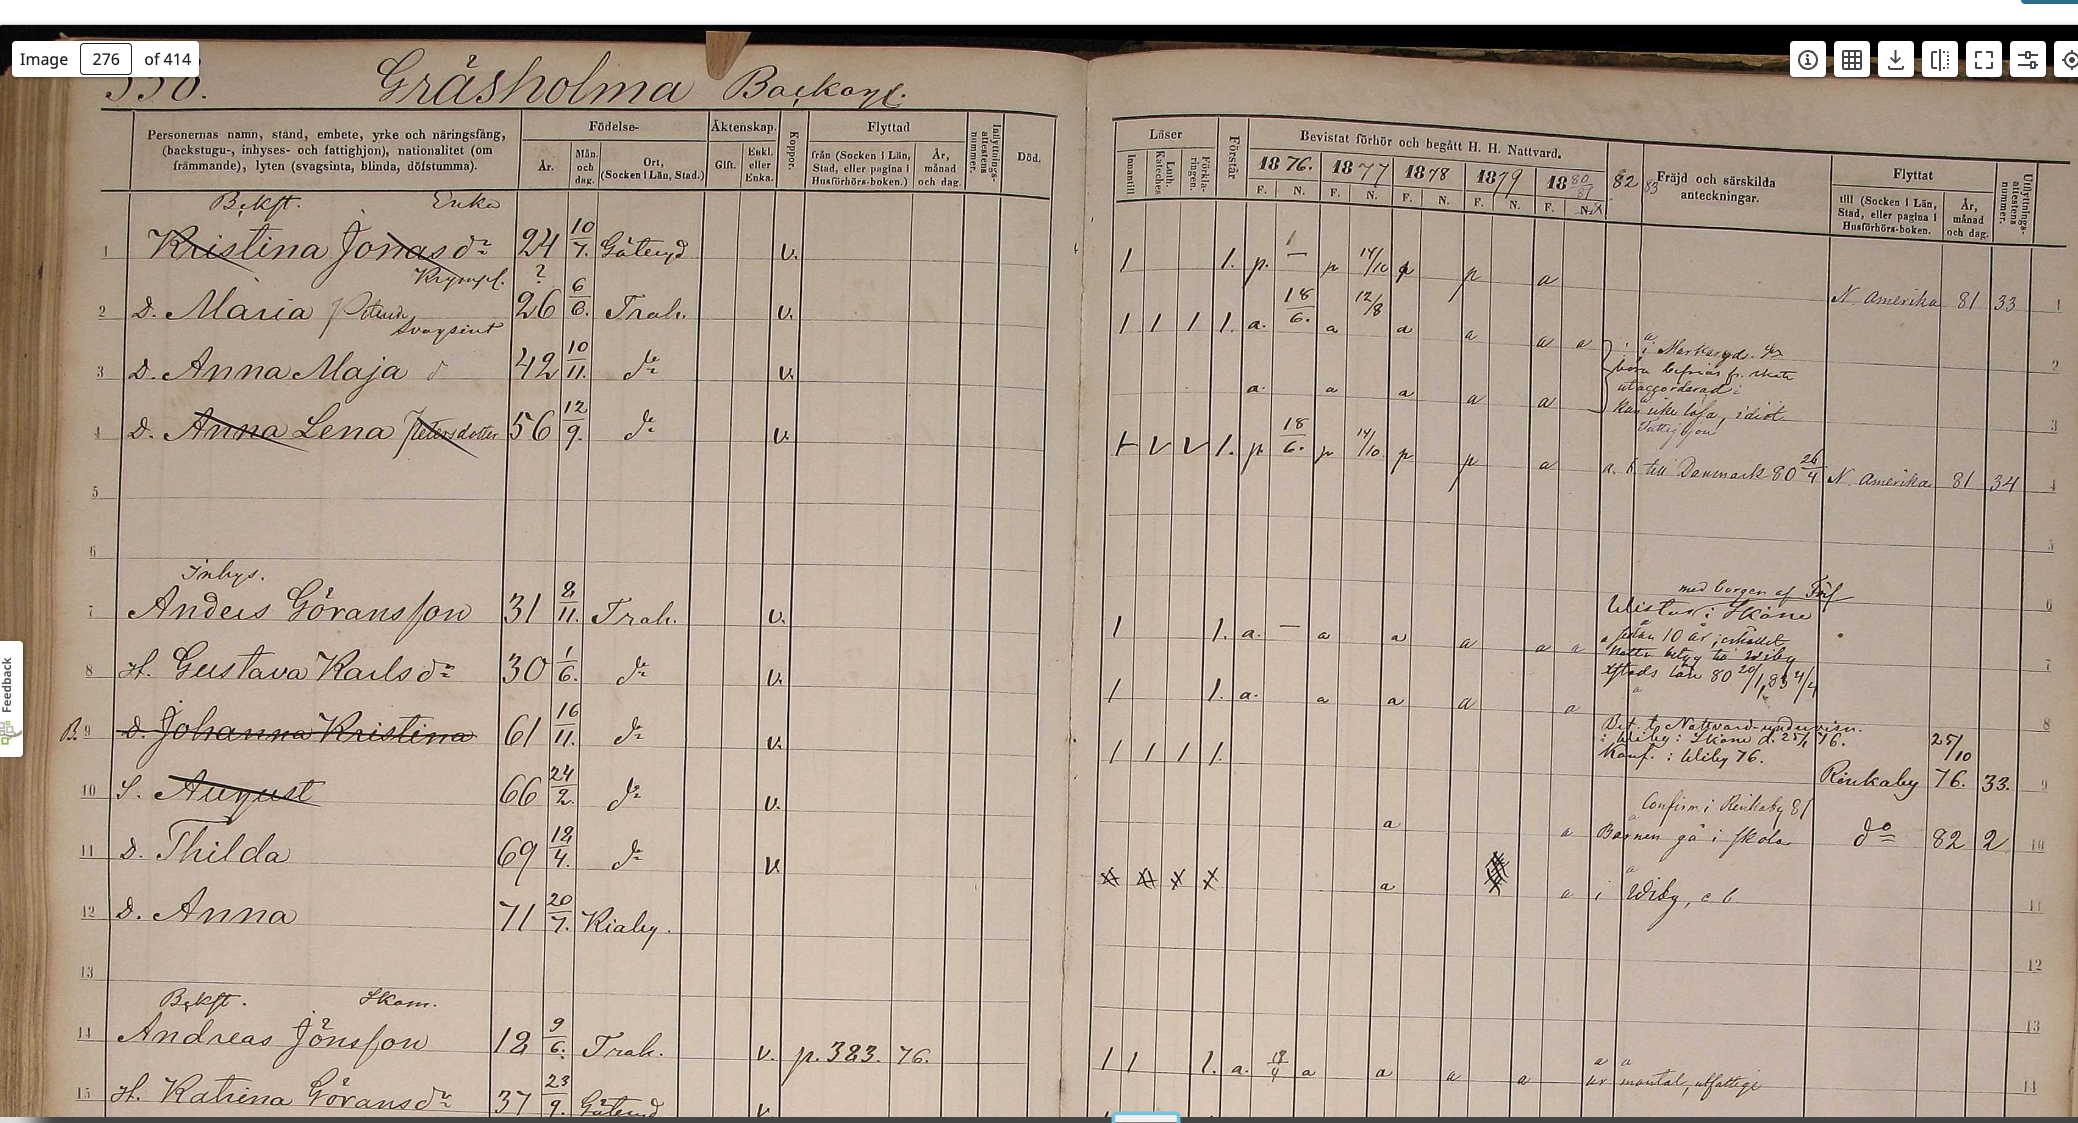 Image 276 of 414
338.
Gråsholma Backage.
Personernas namn, stånd, embete, yrke och näringsfång,
(backstugu-, inhyses- och fattighjon), nationalitet (om
främmande), lyten (svagsinta, blinda, döfstumma).
Födelse-
År.
Mån. och dag.
Ort,
(Socken i Län, Stad.)
Äktenskap.
Gift.
Enkl. eller Enka.
Koppor.
Flyttad
från (Socken i Län,
Stad, eller pagina i
Husförhörs-boken.)
År,
månad
och dag.
Inflyttnings-attestens nummer.
Död.
Läser
Innantill
Luth. Kateches
Förklaringen.
Förstår
Bevistat förhör och begått H. H. Nattvard.
1876. 1877 1878 1879 1880 81 82 83
F. N. F. N. F. N. F. N. F. N.
Fräjd och särskilda
anteckningar.
Flyttat
till (Socken i Län,
Stad, eller pagina i
Husförhörs-boken.
År,
månad
och dag.
Utflyttnings-attestens nummer.
Bckft. Enka
1 Kristina Jonasdr 24 10/7. Göteryd v. 1 1. p. — p 14/10 p p a N. Amerika 81 33 1
Krympl. ?
2 D. Maria Petersd 26 6/6. Trah. v. 1 1 1 1. a. 18/6. a 12/8 a a a a 2
Svagsint
3 D. Anna Maja d 42 10/11. do v. a. a a a a 3
i Markaryd.
utaccorderad
Kan icke läsa, idiot
Fattighjon
4 D. Anna Lena Petersdotter 56 12/9. do v. 1. p 18/6. p 14/10. p p a a. b. till Danmark 80 26/4 N. Amerika 81 34 4
5 5
6
Inhys.
med borgen af
6
Wistas i Skåne
7 Anders Göransson 31 2/11. Trah. v. 1 1. a. — a a a a a sedan 10 år, erhållit
betyg till Wiby
80 20/1, 83 4/4
7
8 H. Gustava Karlsdr 30 1/6. do v. 1 1. a. a a a a 8
Bet. t. Nattvard-undervisn.
i Wiby i Skåne d. 25/1 76.
Konf. i Wiby 76.
B. 9 d. Johanna Kristina 61 16/11. do v. 1 1 1 1. Rinkaby 25/10 76. 33. 9
Confirm i Rinkaby 81
10 S. August 66 24/2. do v. a a Barnen gå i skola do 82 2 10
11 D. Thilda 69 12/4. do v. a a i Wiby, a b. 11
12 D. Anna 71 20/7. Kiaby. 12
13 13
Bckft. Skom.
14 Andreas Jönsson 12 9/6. Trah. v. p. 383. 76. 1 1 1. a. a a a a a a mantal, utfattige 14
15 H. Katrina Göransdr 37 23/9. Göteryd v.
Feedback